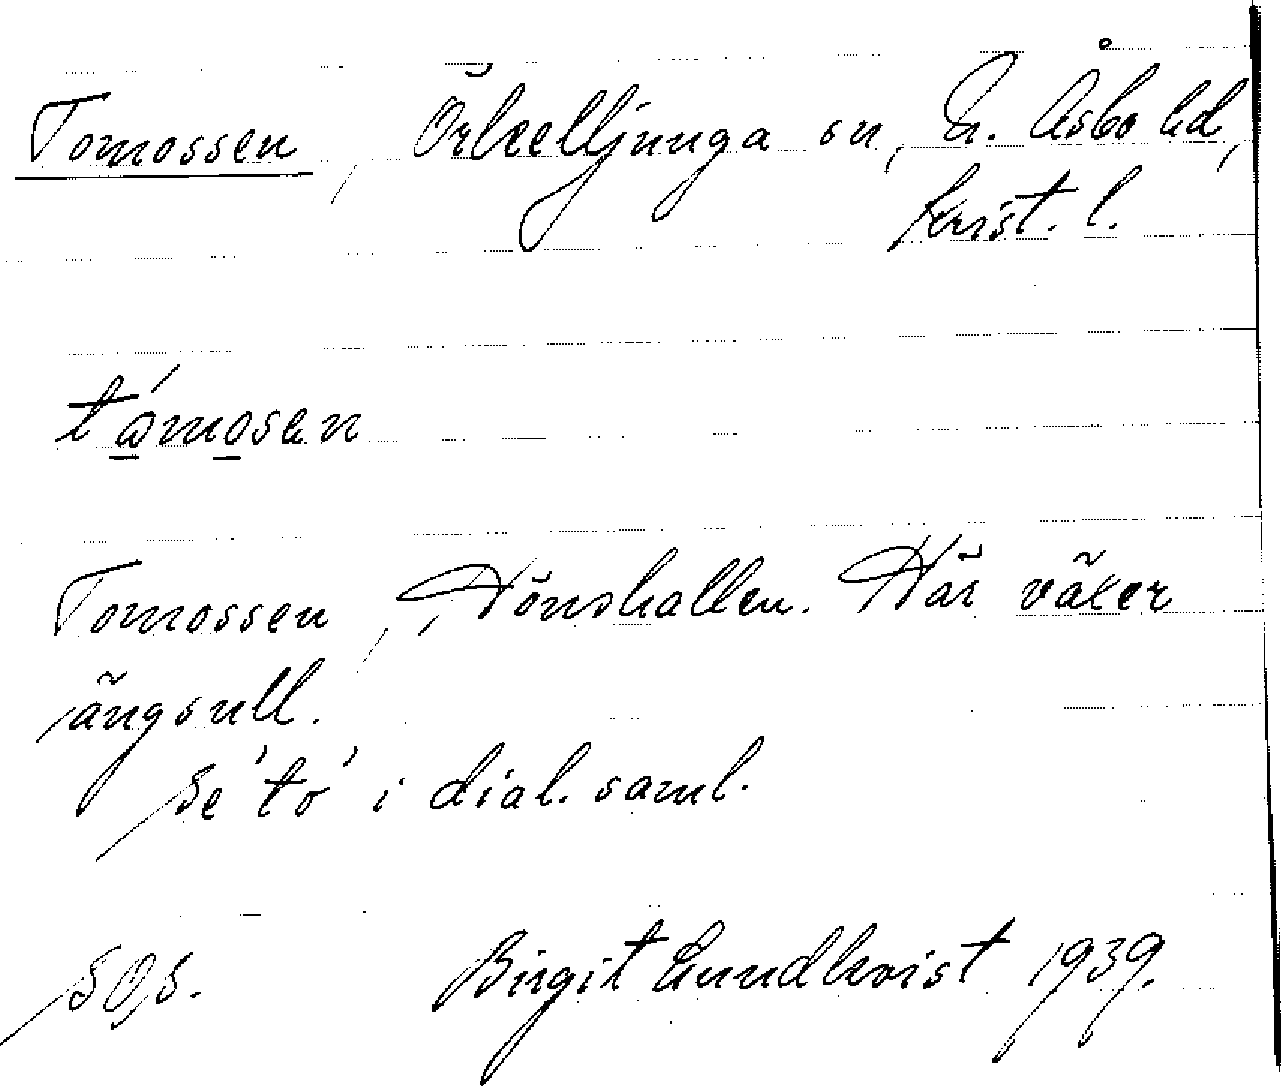 Tomossen, Örkelljunga sn, N. Åsbo hd,
Krist. l.
tómosen
Tomossen, Hönshallen. Här växer
ängsull.
Se 'to' i dial. saml.
SOS. Birgit Lundkvist 1939.